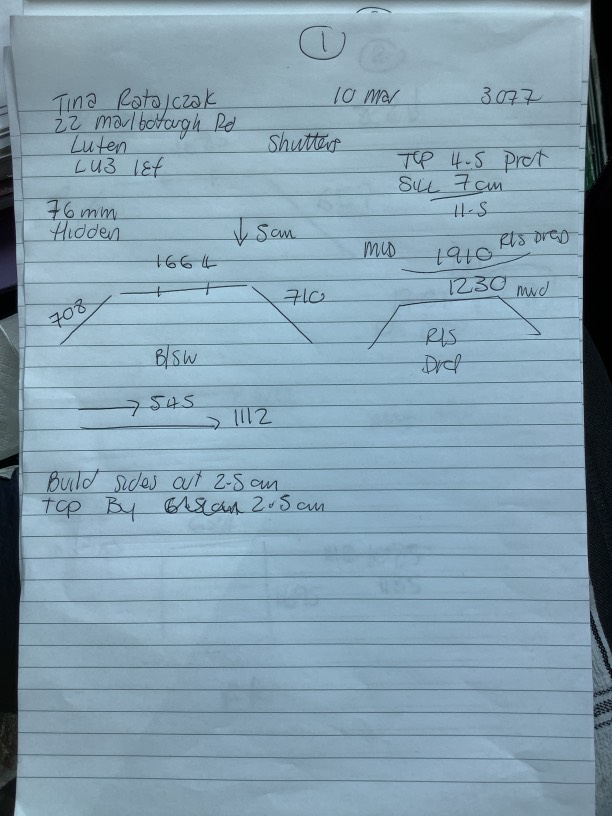 1
Tina Ratajczak 10 Mar 3077
22 Marlborough Rd
Luten Shutters
LU3 1EF
Top 4.5 Prot
Sill 7cm
11.5
76mm
Hidden
↓ 5cm
MID 1910 R/S Drop
1664
1230 mid
708
710
B/SW
R/S
Drop
→ 545
→ 1112
Build sides out 2.5cm
Top By 2.5cm